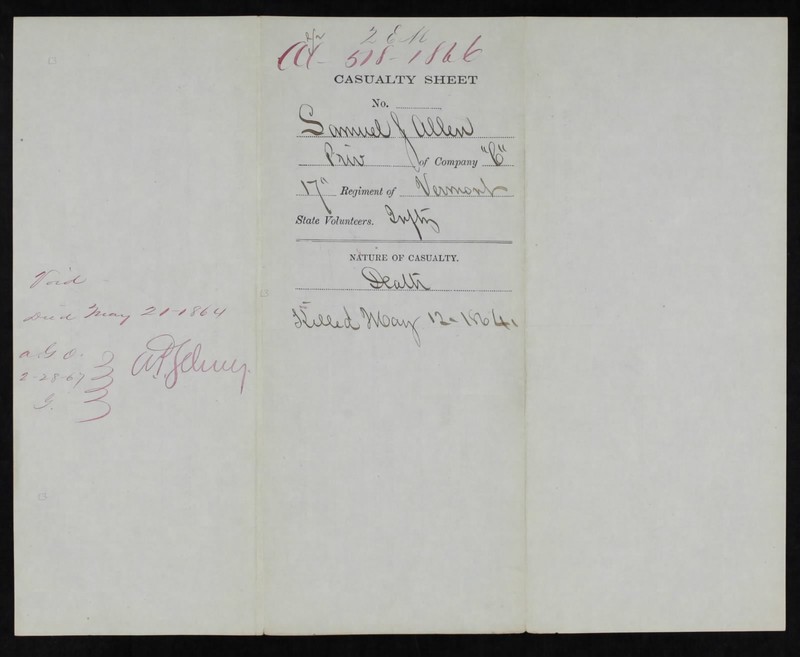 2 E M
A - 518 - 1866
CASUALTY SHEET
No.
Samuel J Allen
Priv of Company "C"
17" Regiment of Vermont
State Volunteers. Infty
NATURE OF CASUALTY.
Death
Killed May 12 - 1864.
Void
Died May 21 - 1864
A G O.
2-28-67